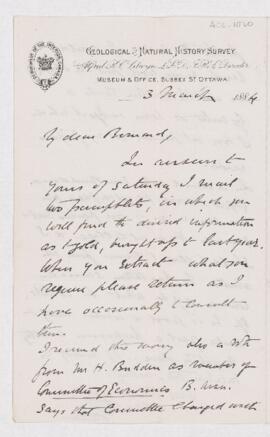 ACC-1560
GEOLOGICAL & NATURAL HISTORY SURVEY
Alfred R. C. Selwyn, L.L.D., F.R.S., Director
MUSEUM & OFFICE, SUSSEX ST OTTAWA
3 March 1884
My dear Bernard,
In answer to
yours of Saturday I mail
two pamphlets, in which you
will find the desired information
as to gold, brought up to last year.
When you extract what you
require please return as I
have occasionally to consult
them.
I received this morning also a
from Mr H. Budden as member of
Committee of Economics B. Assn.
Says that Committee charged with